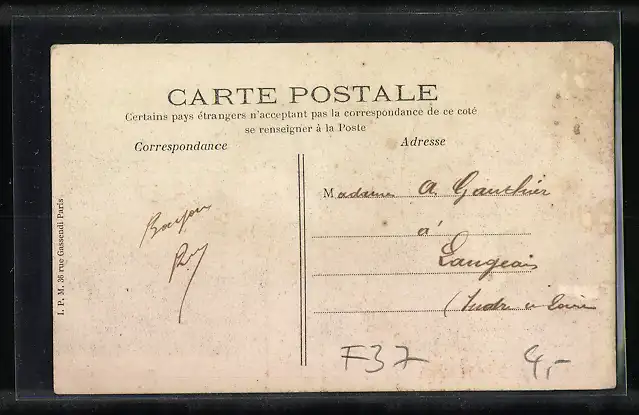 CARTE POSTALE
Certains pays étrangers n'acceptant pas la correspondance de ce coté
se renseigner à la Poste
Correspondance
Adresse
Madame A. Gauthier
à
Langeais
(Indre et Loire
Bonjour
I. P. M. 36 rue Gassendi Paris
F37
4,-